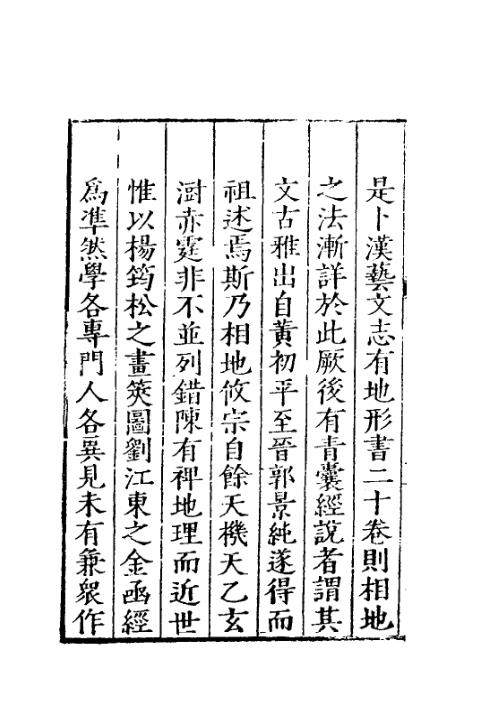 是卜漢藝文志有地形書二十卷則相地
之法漸詳於此厥後有青囊經說者謂其
文古雅出自黃初平至晉郭景純遂得而
祖述焉斯乃相地攸宗自餘天機天乙玄
澍赤霆非不並列錯陳有裨地理而近世
惟以楊筠松之畫筴圖劉江東之金函經
為準然學各專門人各異見未有兼眾作